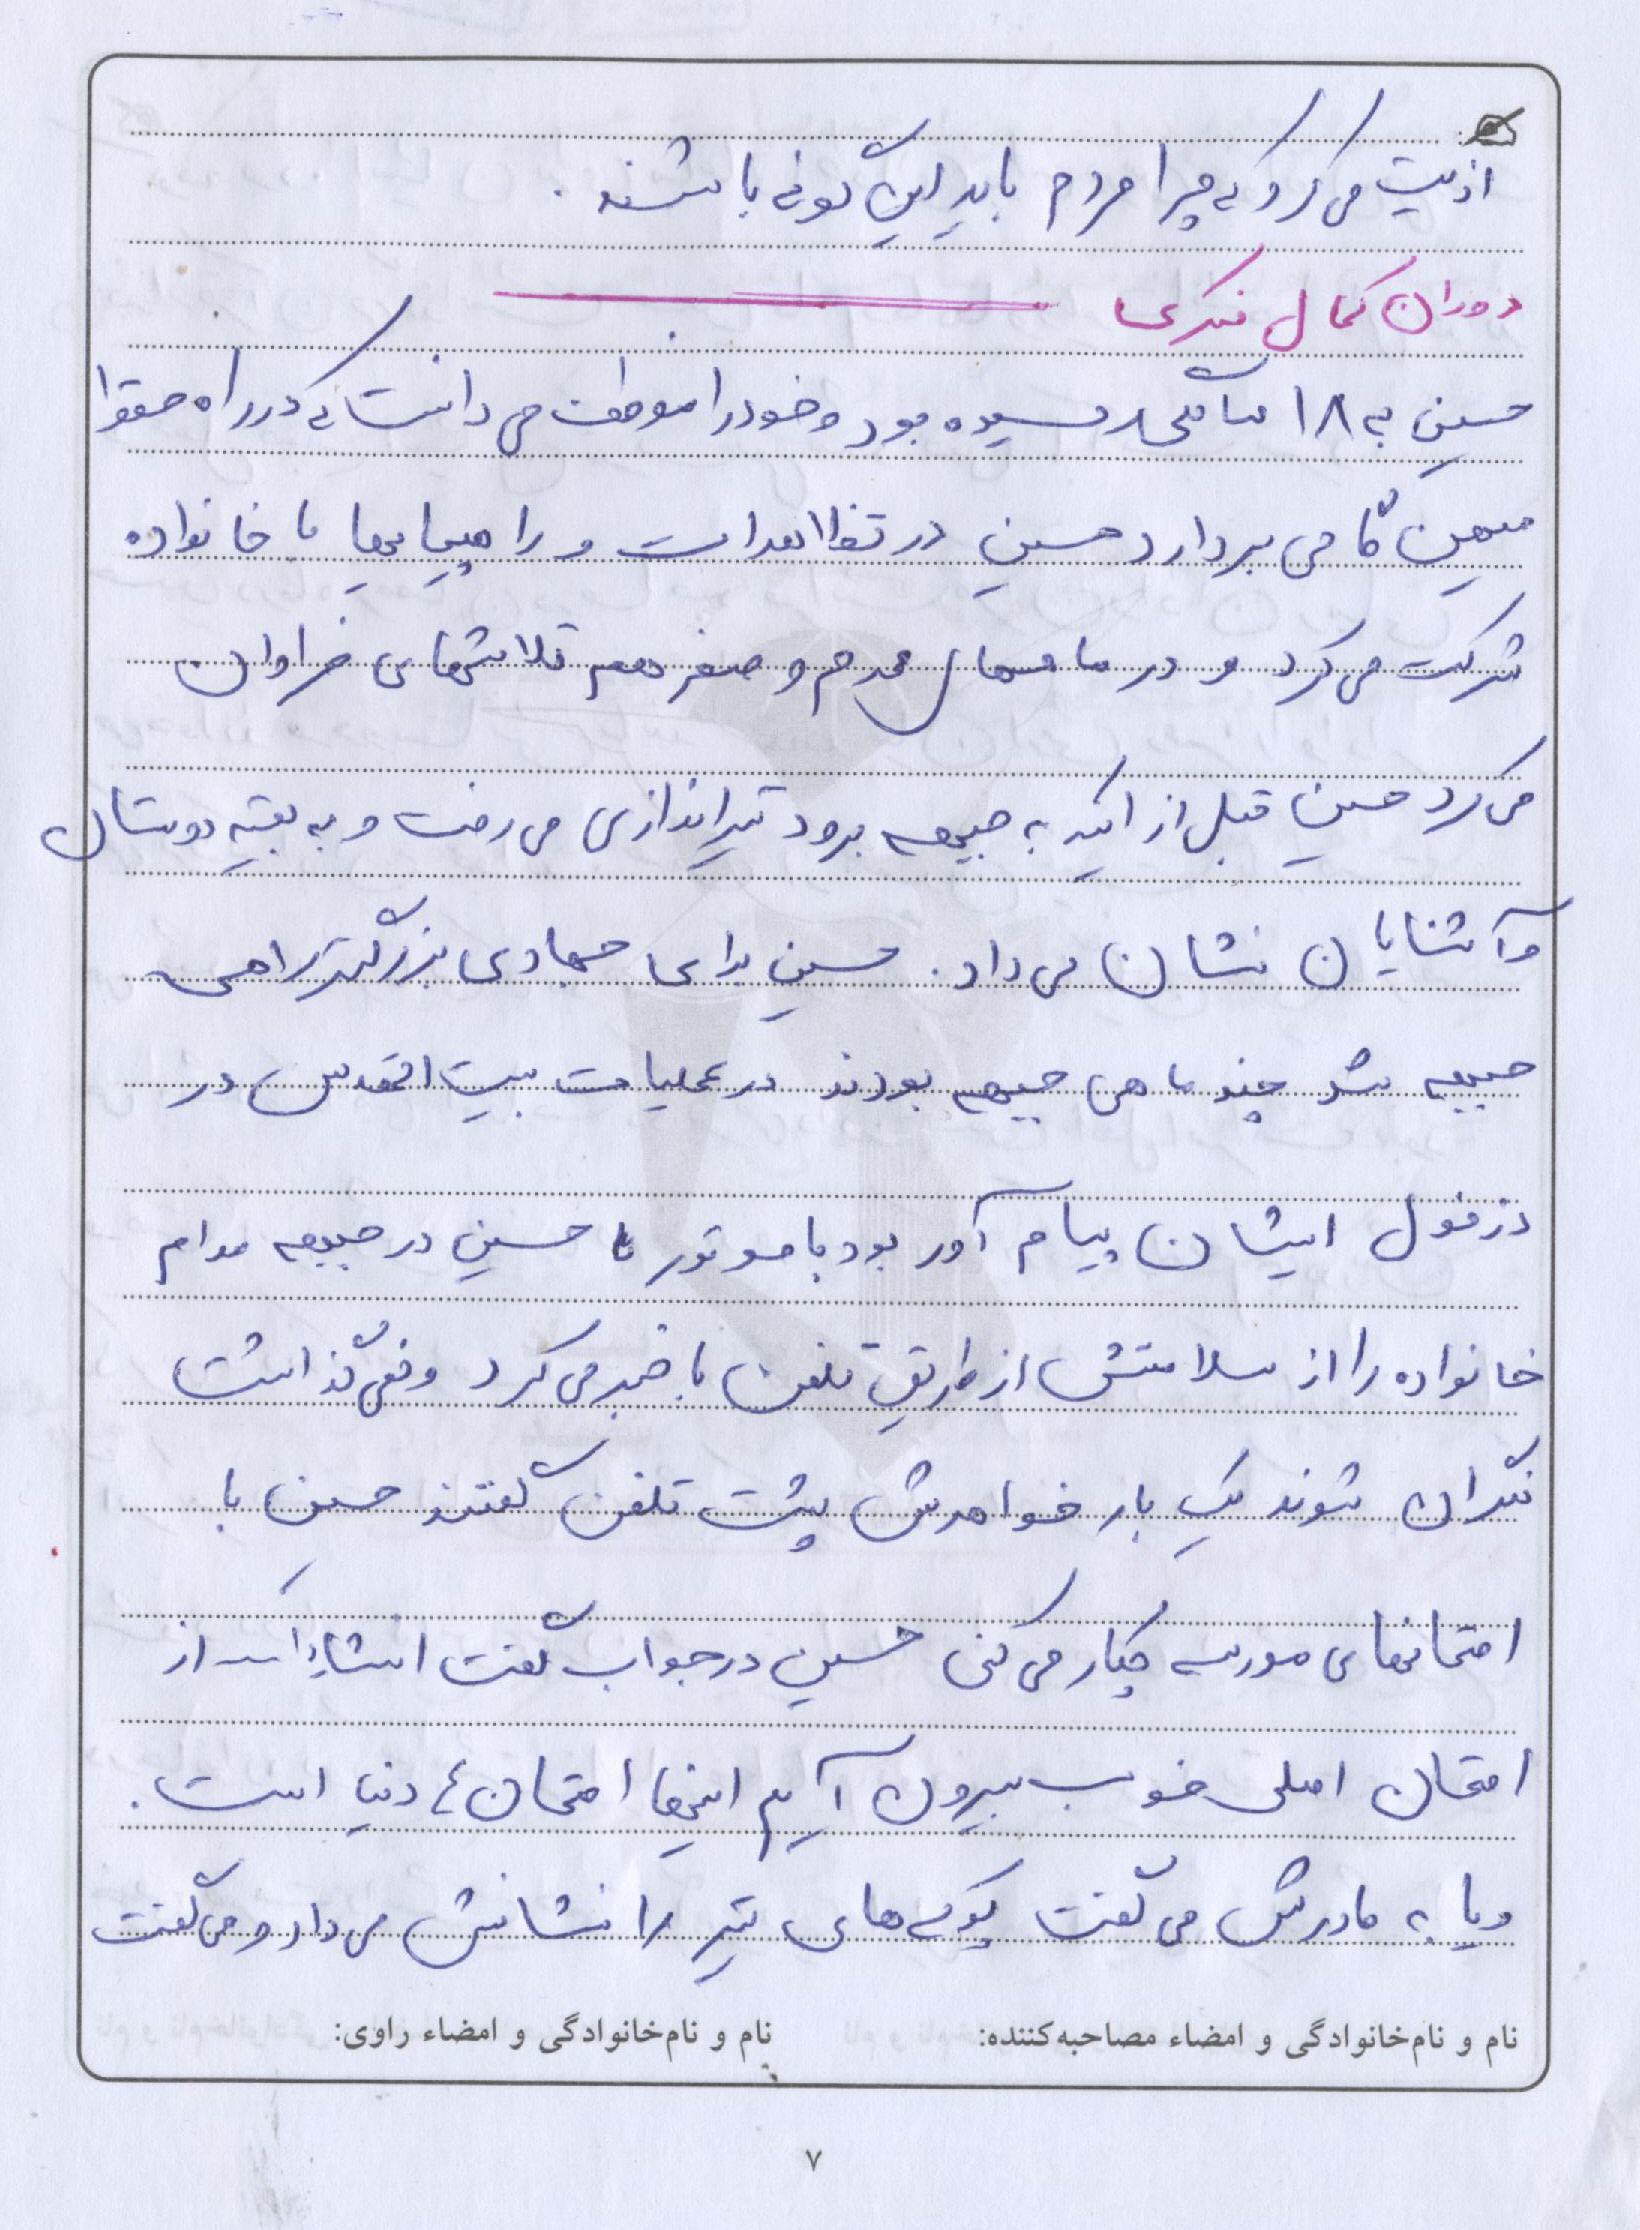 اذیت می‌کرد که چرا مردم باید این گونه باشند.
دوران کمال فکری
حسین به ۱۸ سالگی رسیده بود و خود را موظف می دانست که در راه حفظ
میهن گام بردارد حسین در تظاهرات و راهپیمایی‌ها با خانواده
شرکت می‌کرد و در ماههای محرم و صفر هم تلاشهای فراوان
می‌کرد حسین قبل از اینکه به جبهه برود تیراندازی می رفت و به بقیه دوستان
و آشنایان نشان می داد. حسین برای جهادی بزرگتر راهی
جبهه شد چند ماهی جبهه بودند در عملیات بیت المقدس در
دزفول ایشان پیام آور بود با موتور حسین در جبهه مدام
خانواده را از سلامتش از طریق تلفن با خبر می کرد و نمی گذاشت
نگران شوند یک بار خواهرش پشت تلفن گفتند حسین با
امتحانهای مدرسه چکار می کنی حسین در جواب گفت انشاءالله از
امتحان اصلی خوب بیرون آییم اینها امتحان دنیا است.
و یا به مادرش می گفت پوکه های تیر را نشانش می داد و می گفت
نام و نام‌خانوادگی و امضاء مصاحبه‌کننده: نام و نام‌خانوادگی و امضاء راوی:
۷